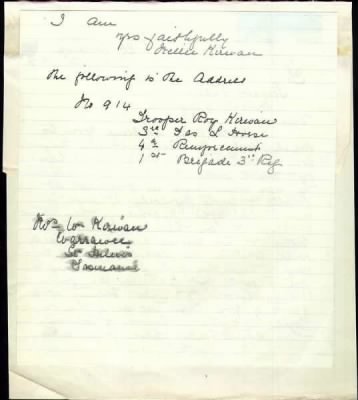 I am
yrs faithfully
Nellie Kirwan
The following is the Address
No 914
Trooper Roy Kirwan
3rd Tas L Horse
4th Reinforcement
1st Brigade 3rd Reg
Mrs Wm Kirwan
St Helens
Tasmania